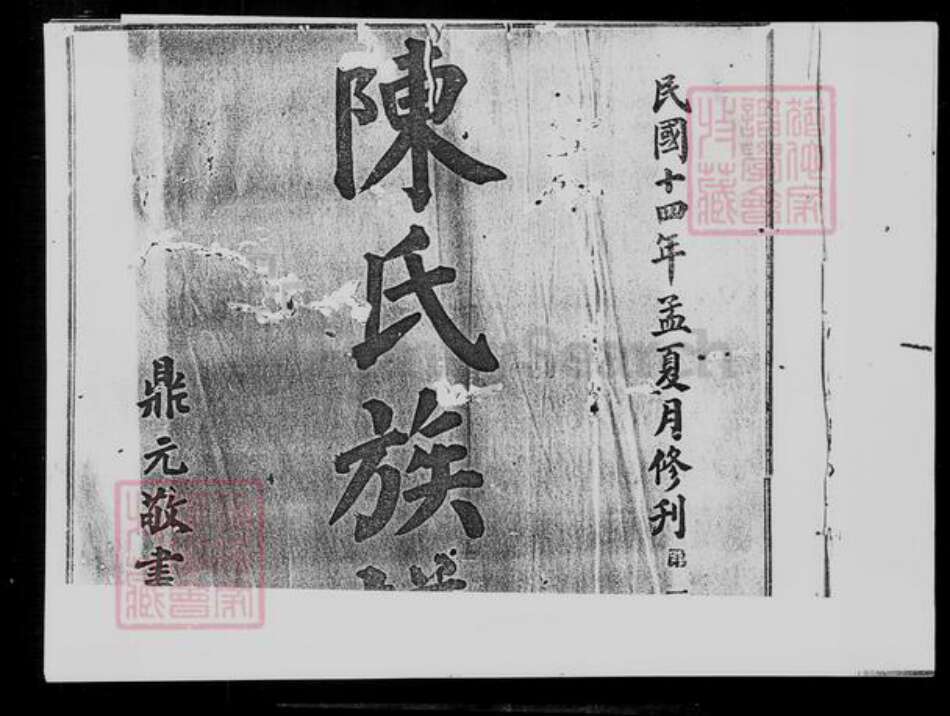 民國十四年孟夏月修刊
陳氏族
鼎元敬書